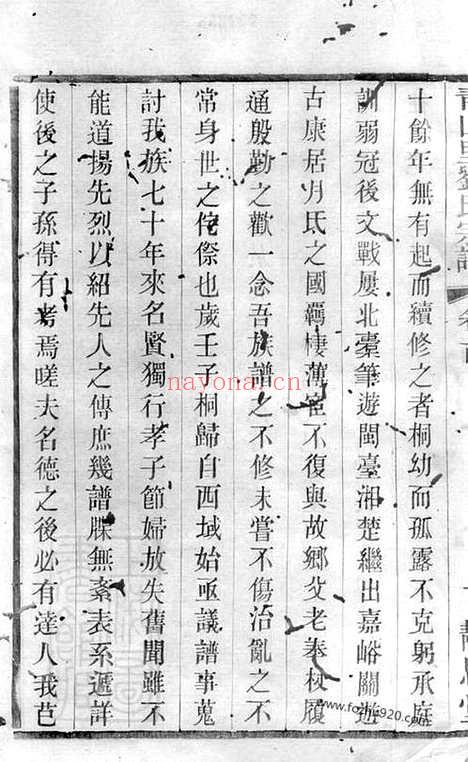 十餘年無有起而續修之者桐幼而孤露不克躬承庭
訓弱冠後文戰屢北橐筆遊閩臺湘楚繼出嘉峪關遊
古康居月氐之國羈棲薄宦不復與故鄉父老奉杖履
通殷勤之歡一念吾族譜之不修未嘗不傷治亂之不
常身世之侘傺也歲壬子桐歸自西域始亟議譜事蒐
討我族七十年來名賢獨行孝子節婦放失舊聞雖不
能道揚先烈以紹先人之傳庶幾譜牒無紊表系遞詳
使後之子孫得有考焉嗟夫名德之後必有達人我芑
nayona.cn
www.fozhu920.com